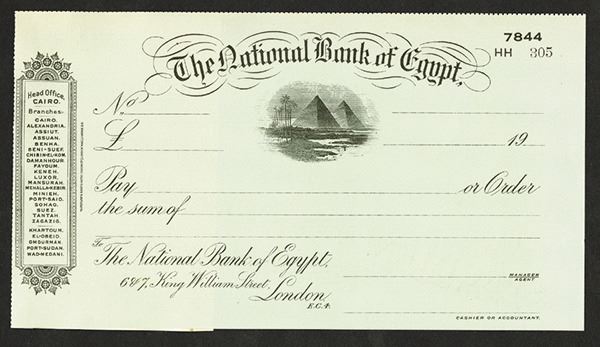 7844
HH 305
The National Bank of Egypt,
Head Office,
CAIRO.
Branches-
CAIRO.
ALEXANDRIA.
ASSIUT.
ASSUAN.
BENHA.
BENI-SUEF.
CHIBIN-EL-KOM.
DAMANHOUR
FAYOUM.
KENEH.
LUXOR.
MANSURAH.
MEHALLA-KEBIR
MINIEH.
PORT-SAID.
SOHAG.
SUEZ.
TANTAH.
ZAGAZIG.
KHARTOUM.
EL-OBEID.
OMDURMAN.
PORT-SUDAN.
WAD-MEDANI.
No
£ 19
Pay or Order
the sum of
To
The National Bank of Egypt,
6&7, King William Street,
London,
E.C.4.
MANAGER
AGENT
CASHIER OR ACCOUNTANT.